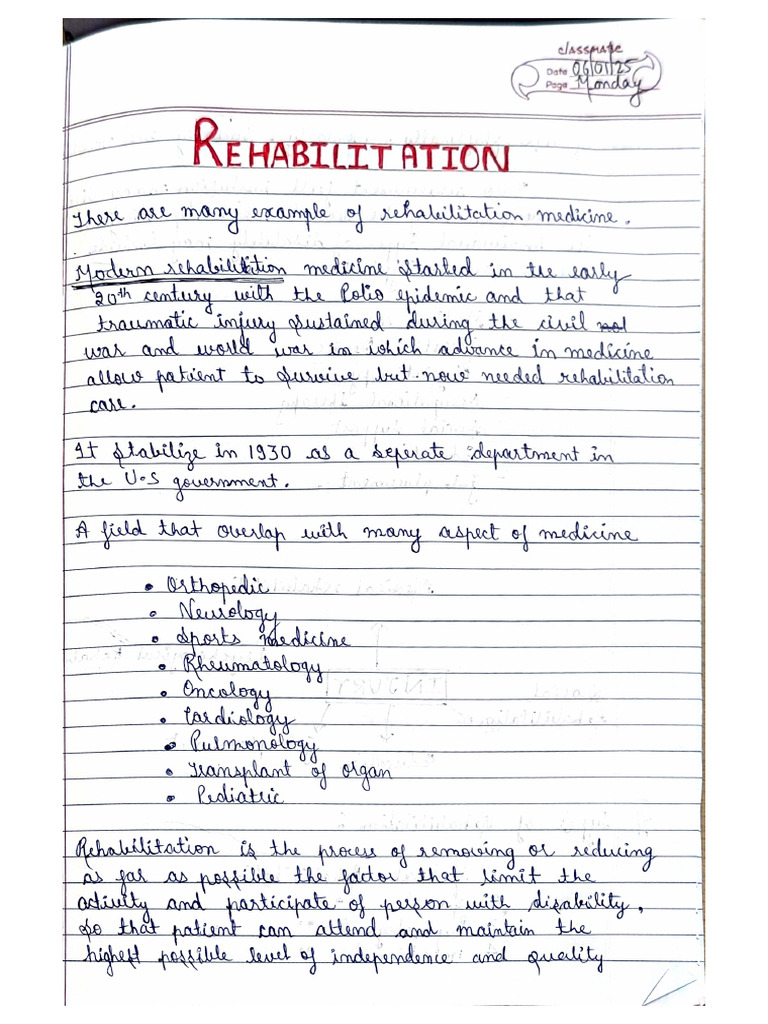 classmate
Date 06/01/25
Page Monday
REHABILITATION
There are many example of rehabilitation medicine.
Modern rehabilition medicine started in the early
20th century with the Polio epidemic and that
traumatic injury sustained during the civil
war and world war in which advance in medicine
allow patient to survive but now needed rehabilitation
care.
It stabilize in 1930 as a seperate department in
the U.S government.
A field that overlap with many aspect of medicine
• Orthopedic
• Neurology
• Sports medicine
• Rheumatology
• Oncology
• Cardiology
• Pulmonology
• Transplant of organ
• Pediatric
Rehabilitation is the process of removing or reducing
as far as possible the factor that limit the
activity and participate of person with disability,
so that patient can attend and maintain the
highest possible level of independence and quality